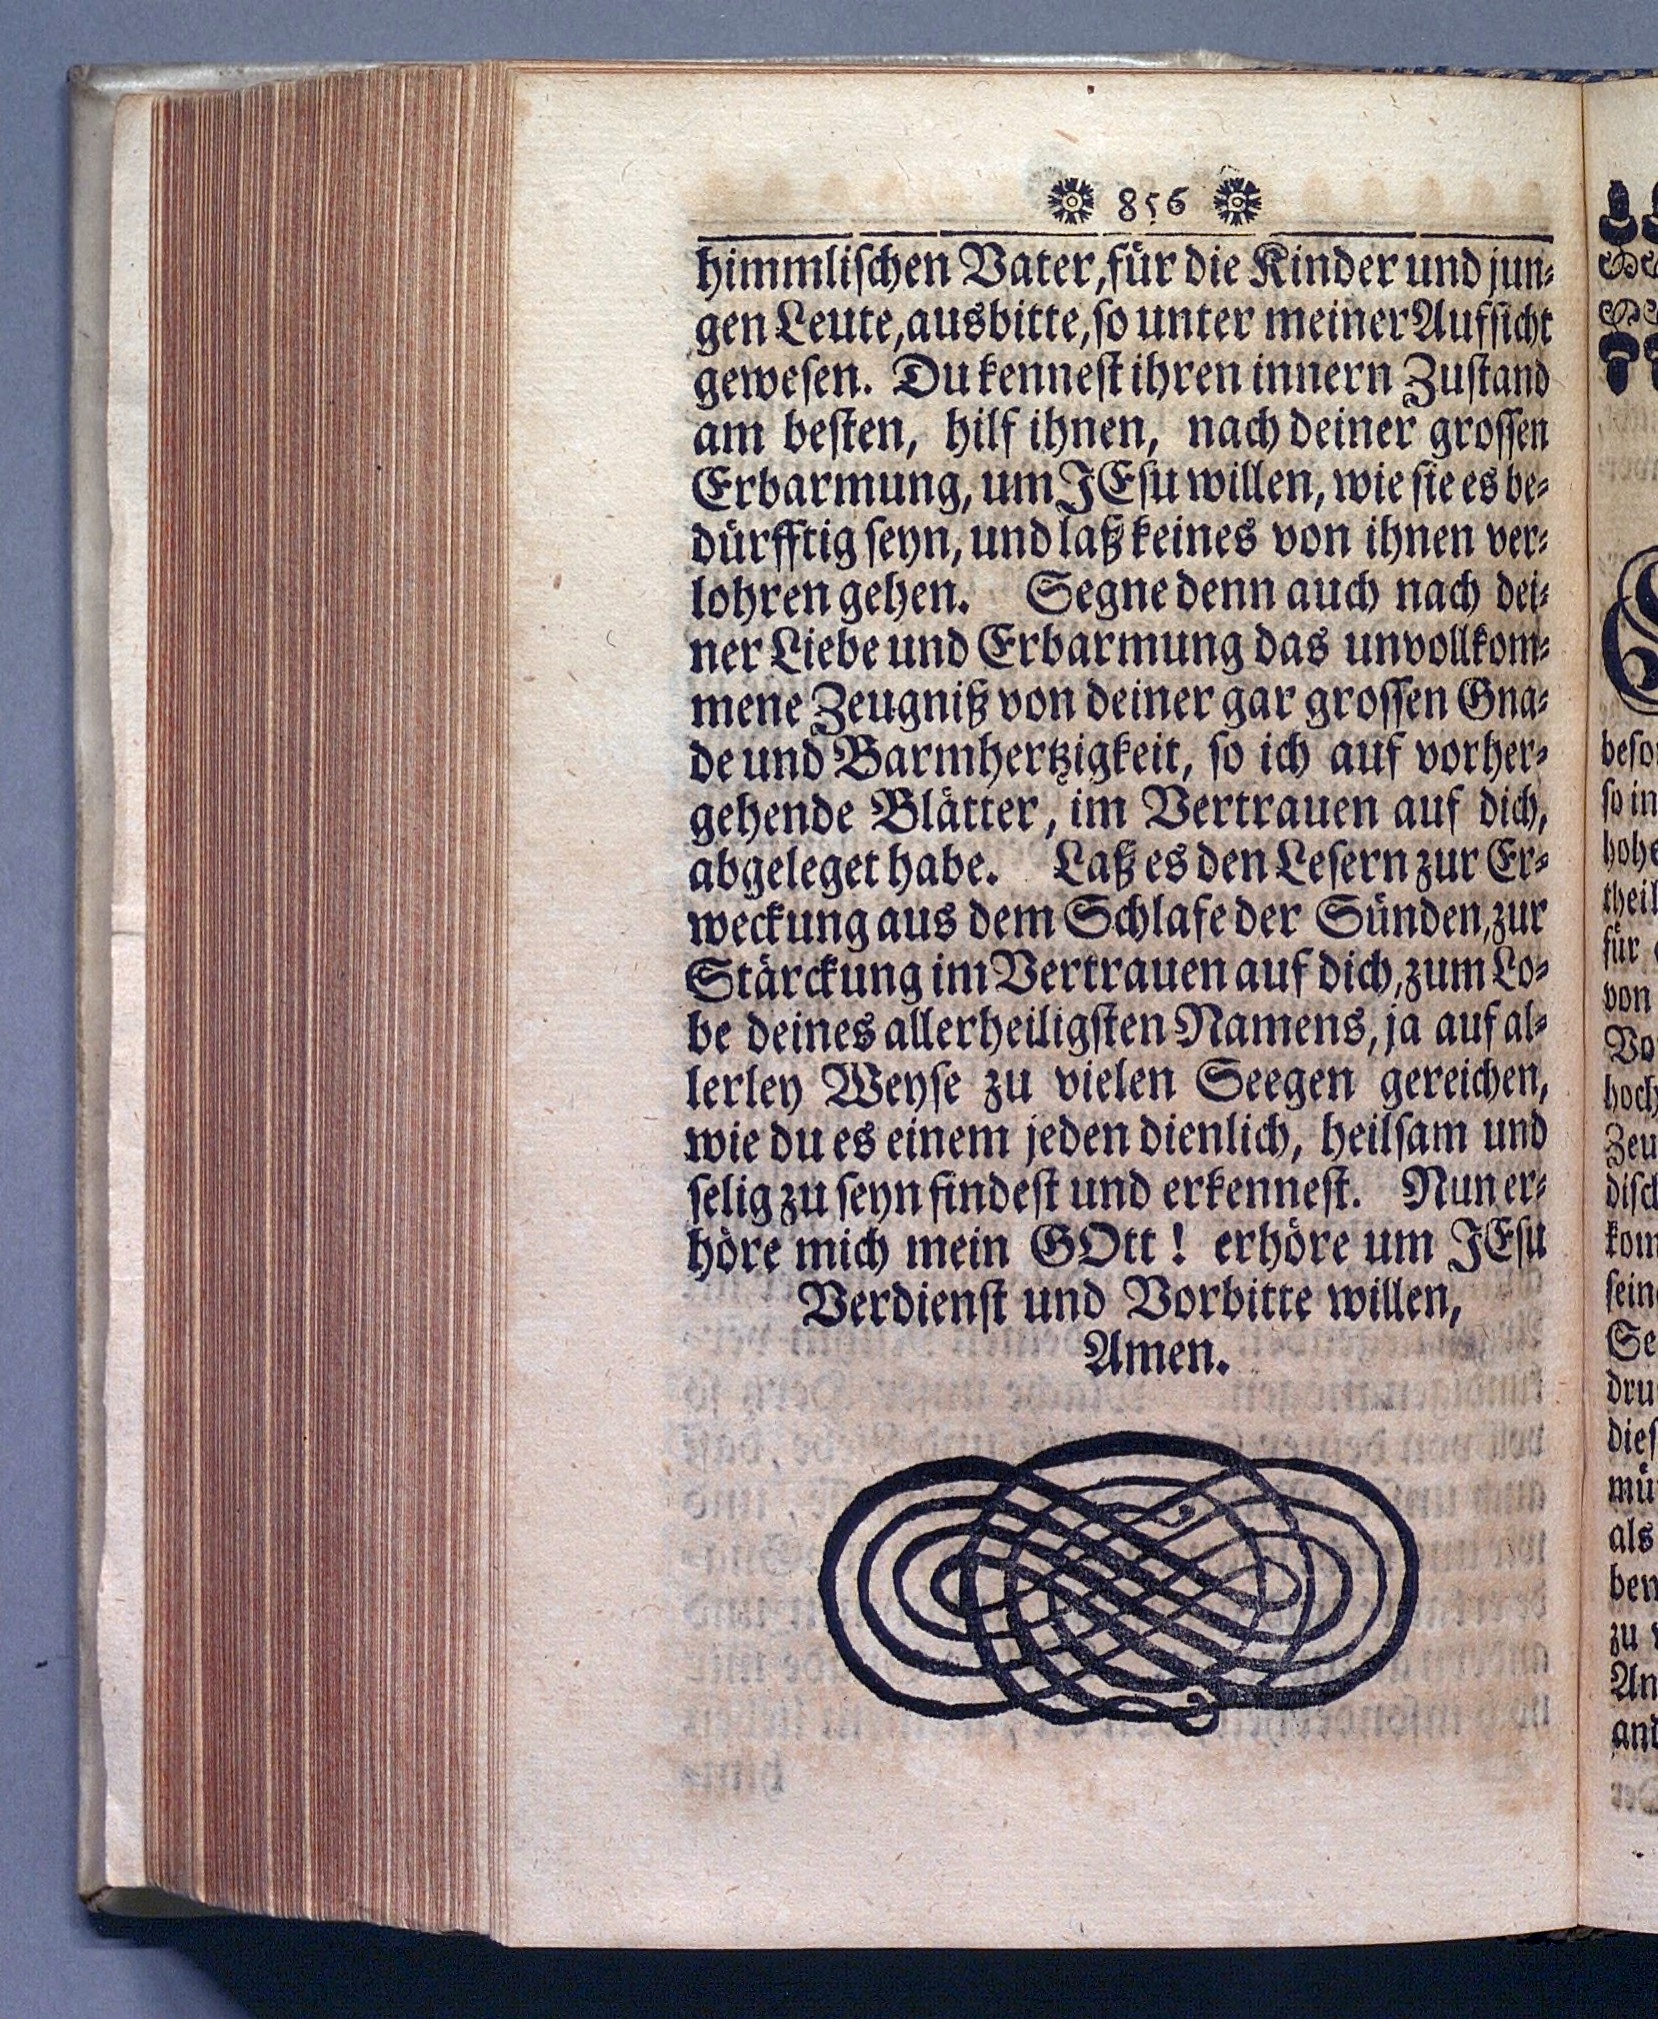 856
himmlischen Vater, für die Kinder und jun-
gen Leute, ausbitte, so unter meiner Aufsicht
gewesen. Du kennest ihren innern Zustand
am besten, hilf ihnen, nach deiner grossen
Erbarmung, um JEsu willen, wie sie es be-
dürfftig seyn, und laß keines von ihnen ver-
lohren gehen. Segne denn auch nach dei-
ner Liebe und Erbarmung das unvollkom-
mene Zeugniß von deiner gar grossen Gna-
de und Barmhertzigkeit, so ich auf vorher-
gehende Blätter, im Vertrauen auf dich,
abgeleget habe. Laß es den Lesern zur Er-
weckung aus dem Schlafe der Sünden, zur
Stärckung im Vertrauen auf dich, zum Lo-
be deines allerheiligsten Namens, ja auf al-
lerley Weyse zu vielen Seegen gereichen,
wie du es einem jeden dienlich, heilsam und
selig zu seyn findest und erkennest. Nun er-
höre mich mein GOtt! erhöre um JEsu
Verdienst und Vorbitte willen,
Amen.
so in
für
von
als
zu